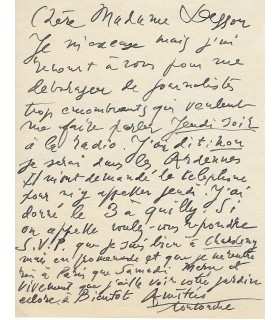 Chère Madame Lesson
Je m'excuse mais j'ai
recours à vous pour me
débarasser de journalistes
trop encombrants qui veulent
me faire parler Jeudi soir
à la radio. J'ai dit non
je serai dans les Ardennes
Ils m'ont demandé le téléphone
pour m'y appeller jeudi. J'ai
donné le 3 à quilly. Si
on appelle voulez-vous répondre
S.V.P. que je suis bien à
mais en promenade et que je ne rentre
rai à Paris que Samedi. Merci et
vivement que j'aille voir votre jardin
eclore. à Bientôt